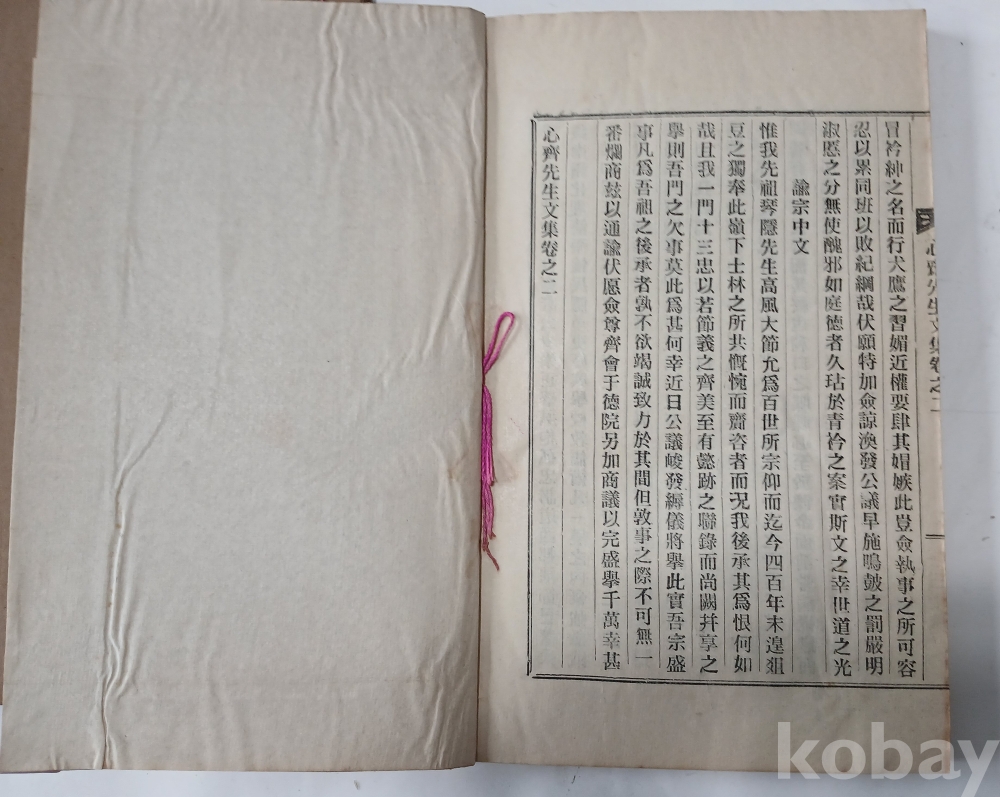 心齊先生文集卷之二
冒衿紳之名而行犬鷹之習媚近權要肆其媢嫉此豈僉執事之所可容
忍以累同班以敗紀綱哉伏願特加僉諒渙發公議早施鳴鼓之罰嚴明
淑慝之分無使醜邪如庭德者久玷於青衿之案實斯文之幸世道之光
諭宗中文
惟我先祖琴隱先生高風大節允爲百世所宗仰而迄今四百年未遑俎
豆之獨奉此嶺下士林之所共慨惋而齎咨者而况我後承其爲恨何如
哉且我一門十三忠以若節義之齊美至有懿跡之聯錄而尚闕幷享之
擧則吾門之欠事莫此爲甚何幸近日公議峻發縟儀將擧此實吾宗盛
事凡爲吾祖之後承者孰不欲竭誠致力於其間但敦事之際不可無一
番爛商玆以通諭伏愿僉尊齊會于德院另加商議以完盛擧千萬幸甚
心齊先生文集卷之二
kobay